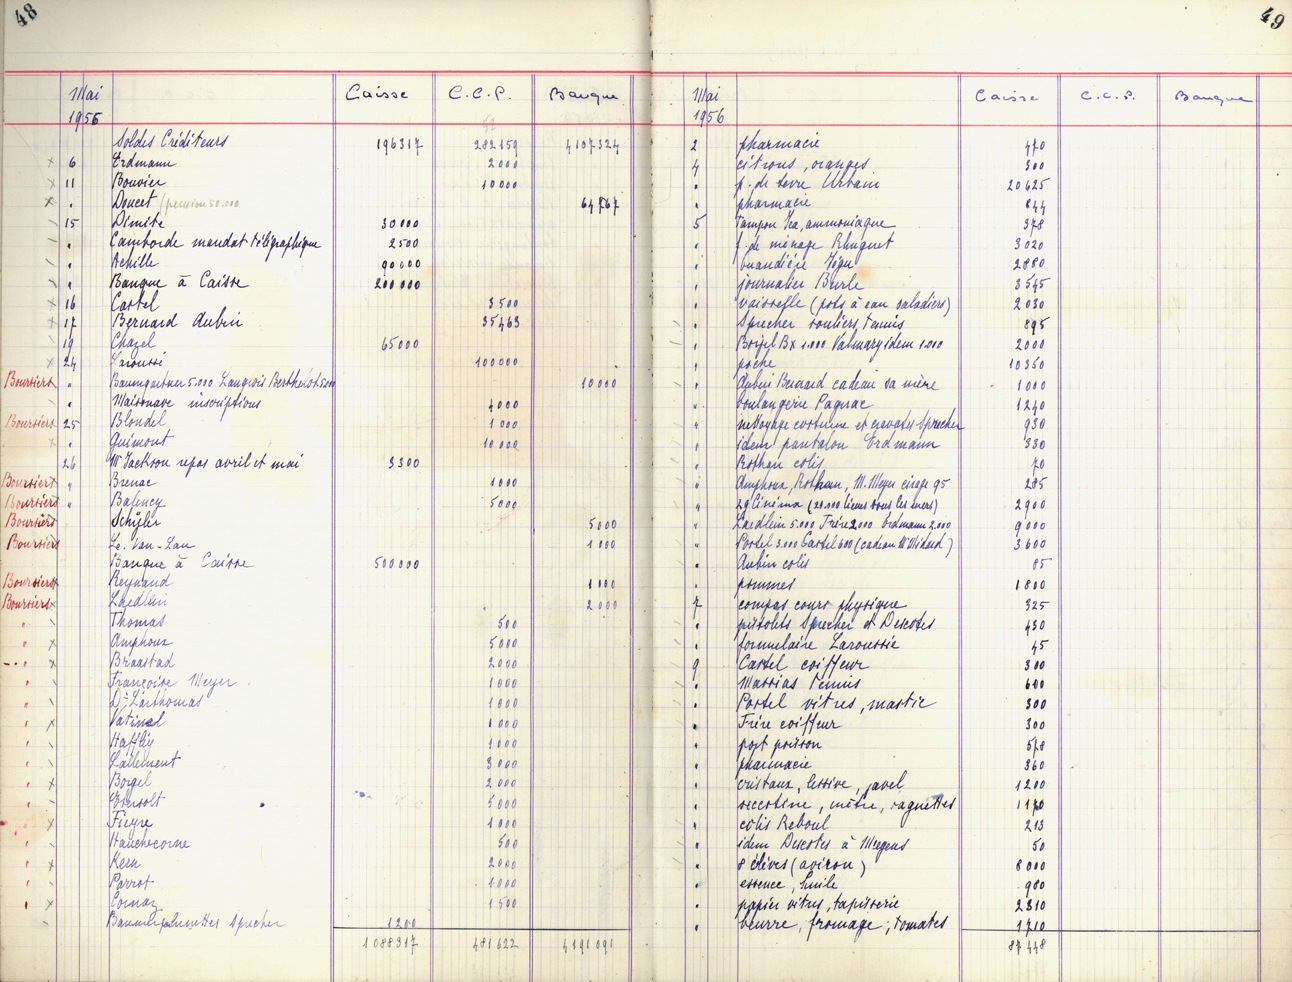 48
Mai Caisse C.C.P. Banque
1956
Soldes Créditeurs 196317 282159 4107324
6 Erdmann 2000
11 Bouvier 10000
" Doucet (pension 50.000 64767
15 Dimite 30000
" Camborde mandat télégraphique 2500
" Achille 90000
" Banque à Caisse 200000
16 Castel 3500
17 Bernard Aubin 35463
19 Chazel 65000
24 Laroussi 100000
Boursiers " Baumgartner 5.000 Langlois Berthelot 5000 10000
" Maisonave inscriptions 4000
Boursiers 25 Blondel 1000
" Guimont 10000
26 Mr Jackson repas avril et mai 3300
Boursiers " Brenac 1000
Boursiers " Balency 5000
Boursiers Schÿler 5000
Boursiers Le-Van-Lau 1000
Banque à Caisse 500000
Boursiers Reynaud 1000
Boursiers Laedlein 2000
" Thomas 500
" Amphoux 5000
" Braastad 2000
" Françoise Meyer 1000
" Dr Larthomas 1000
" Vatinel 1000
" Haffléy 1000
" Lallement 3000
" Borgel 2000
" 5000
" Fieyre 1000
" Hauchecorne 500
" Kern 2000
" Parrot 1000
" Cornaz 1500
Sprecher 1200
1088317 481622 4191091
49
Mai Caisse C.C.P. Banque
1956
2 pharmacie 470
4 citrons, oranges 300
" p. de terre Urbain 20625
" pharmacie 844
5 Tampon Jex, ammoniaque 378
" f. de ménage Rhuguet 3020
" buandière Jégu 2880
" journalier Burle 3545
" vaisselle (pots à eau saladiers) 2030
" Sprecher souliers tennis 895
" Borgel Bx 1.000 Valmary idem 1.000 2000
" poche 10350
" Aubin Bernard cadeau sa mère 1000
" boulangerie Pagnac 1240
" nettoyage costume et cravates Sprecher 930
" idem pantalon Erdmann 330
" Rothan colis 70
" Amphoux, Rothan, M. Meyer cirage 95 285
" 29 Cinéma (20.000 lieues sous les mers) 2900
" Laedlein 5.000 Frère 2.000 Erdmann 2.000 9000
" Portel 3.000 Castel 600 (cadeau 3600
" Aubin colis 85
" pommes 1800
7 compas cours physique 325
" pistolets Sprecher et Descotes 430
" formulaire Laroussie 45
9 Castel coiffeur 300
" Massias tennis 600
" Portel vitres, mastic 300
" Frère coiffeur 300
" port poisson 578
" pharmacie 360
" cristaux, lessive, javel 1200
" seccotine, mètre, raquettes 1170
" colis Reboul 213
" idem Descotes à Megens 50
" 8 élèves (aviron) 8000
" essence, huile 980
" papier vitres, tapisserie 2810
" beurre, fromage, tomates 1710
87448